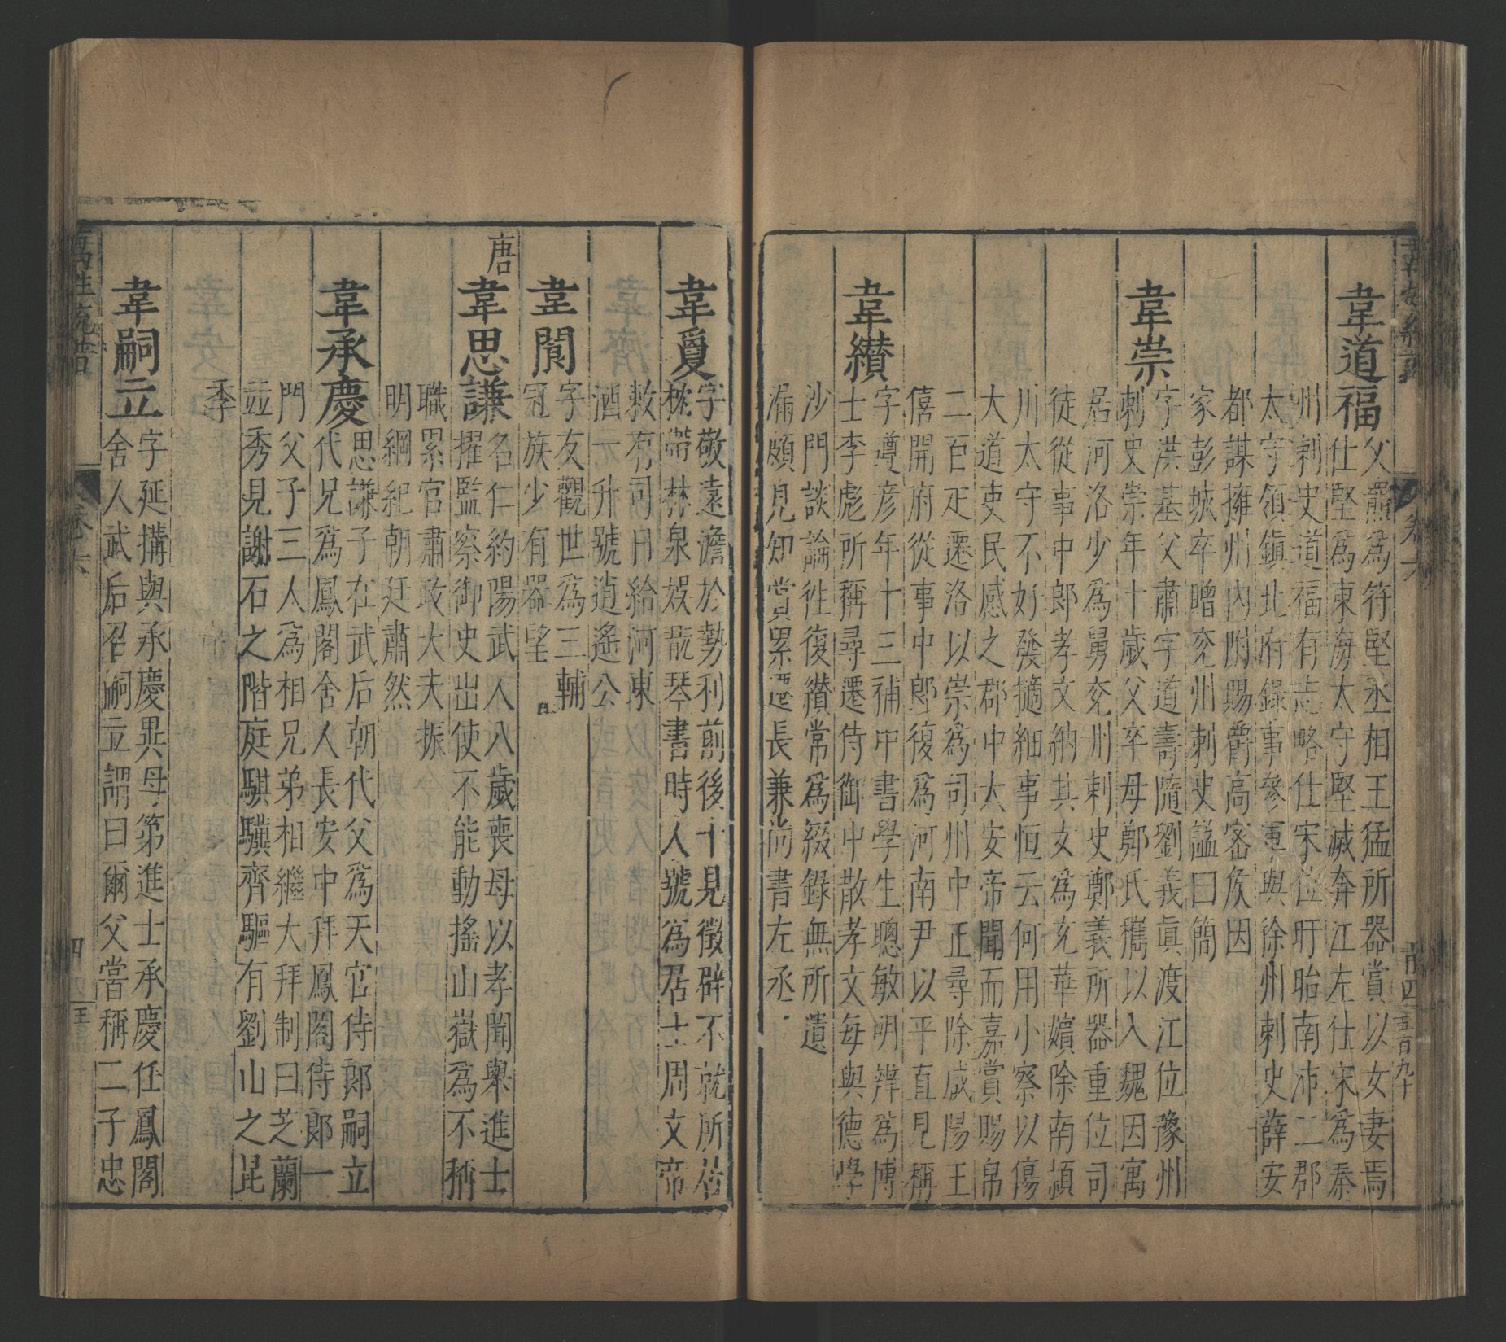 韋道福
父羆為苻堅丞相王猛所器賞以女妻焉
仕堅為東海太守堅滅奔江左仕宋為秦
州刺史道福有志略仕宋位盱眙南沛二郡
太守領鎮北府錄事參軍與徐州刺史薛安
都謀擁州內附賜爵高密侯因
家彭城卒贈兗州刺史謚曰簡
韋崇
字洪基父肅字道壽隨劉義真渡江位豫州
刺史崇年十歲父卒母鄭氏攜以入魏因寓
居河洛少為舅兗州刺史鄭羲所器重位司
徒從事中郎孝文納其女為充華嬪除南潁
川太守不好發擿細事恒云何用小察以傷
大道吏民感之郡中大安帝聞而嘉賞賜帛
二百疋遷洛以崇為司州中正尋除咸陽王
僖開府從事中郎復為河南尹以平直見稱
韋纉
字遵彥年十三補中書學生聰敏明辨為博
士李彪所稱尋遷侍御中散孝文每與德學
沙門談論徃復纉常為綴錄無所遺
漏頗見知賞累遷長兼尚書左丞
韋敻
字敬遠澹於勢利前後十見徵辟不就所居
枕帶林泉娛翫琴書時人號為居士周文帝
敕有司日給河東
酒一升號逍遙公
韋閬
字友觀世為三輔
冠族少有器望
唐
韋思謙
名仁約陽武人八歲喪母以孝聞舉進士
擢監察御史出使不能動搖山嶽為不稱
職累官肅政大夫振
明綱紀朝廷肅然
韋承慶
思謙子在武后朝代父為天官侍郎嗣立
代兄為鳳閣舍人長安中拜鳳閣侍郎一
門父子三人為相兄弟相繼大拜制曰芝蘭
竝秀見謝石之階庭騏驥齊驅有劉山之昆
季
韋嗣立
字延搆與承慶異母第進士承慶任鳳閣
舍人武后召嗣立謂曰爾父嘗稱二子忠
萬姓統譜
卷六